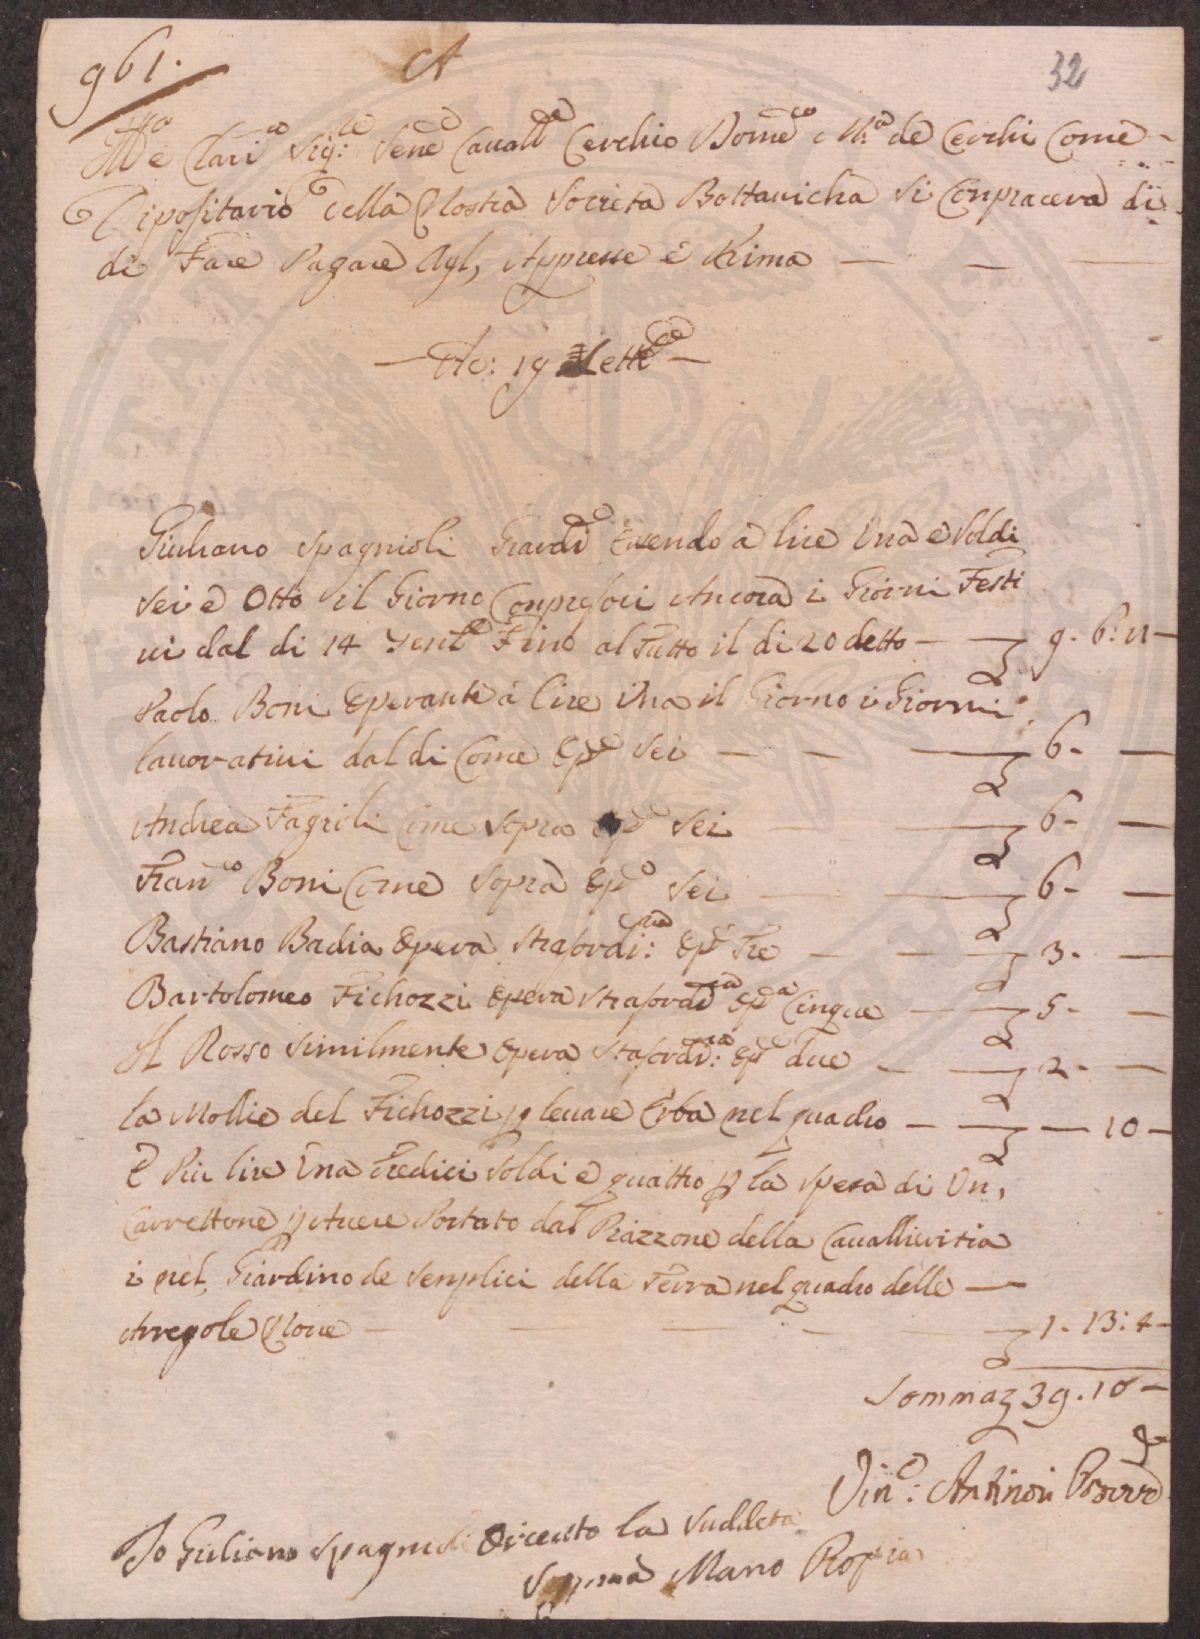 961.
A
32
Ill.mo e Clari.mo Sig.re Sen.e Cavall.e Cerchio Dome.co M.a de Cerchi Come
Dipositario della Nostra Società Bottanicha si Conpiacerà di
di Fare Pagare Agl, Appresse è Prima
Ac: 19 Sette
Giuliano Spagnioli Giardi.o Avendo a lire Una e Soldi
Sei e Otto il Giorno Conpresoci Ancora i Giorni Festi
vi dal di 14 Fino al Tutto il di 20 detto — 9. 6: 11
Paolo Boni Operante à lire Una il Giorno i Giorni
lavorativi dal di Come Op.e Sei — 6-
Andrea Fagioli Come Sopra Op.e Sei — 6-
Fran.co Boni Come Sopra Op.e Sei — 6-
Bastiano Badia Opera Strasordi:ria Op.e Tre — 3-
Bartolomeo Fichozzi Opera Strasordi.ria Op.a Cinque — 5-
Il Rosso Similmente Opera Strasordi:ria Op.e due — 2-
la Mollie del Fichozzi p levare Erba nel quadro — 10
E Più lire Una Tredici Soldi e quattro p la Spesa di Un,
Carrettone p Avere Portato dal Piazzone della Cavallieritia
i nel Giardino de Senplici della Terra nel quadro delle
Arregole Nove — 1. 13: 4
Somma 39. 10
Vin.o: Antinori Provve.re
Io Giuliano Spagnioli O ricevto la Suddeta
Somma Mano Ropia